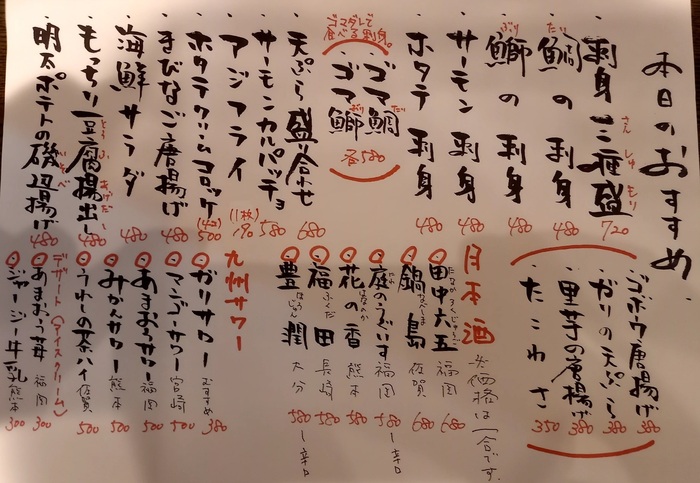 本日のおすすめ
刺身三種盛 さんしゅもり 720
鯛の刺身 たい 480
鰤の刺身 ぶり 480
サーモン刺身 480
ホタテ刺身 480
ゴマダレで食べる刺身。
ゴマ鯛 たい
ゴマ鰤 ぶり
各580
天ぷら盛り合わせ 680
サーモンカルパッチョ 580
アジフライ (1枚) 190
ホタテクリームコロッケ (4コ) 500
きびなご唐揚げ 480
海鮮サラダ 480
もっちり豆腐揚出し とうふあげだし 480
明太ポテトの磯辺揚げ いそべ 480
ゴボウ唐揚げ 380
ガリの天ぷら 380
里芋の唐揚げ 380
たこわさ 350
日本酒 ※価格は一合です。
田中六五 たなかろくじゅうご 福岡 680
鍋島 なべしま 佐賀 680
庭のうぐいす 福岡 580 辛口
花の香 はなのか 熊本 580
福田 ふくだ 長崎 580
豊潤 ほうじゅん 大分 580 辛口
九州サワー
ガリサワー おすすめ 380
マンゴーサワー 宮崎 500
あまおうサワー 福岡 500
みかんサワー 熊本 500
うれしの茶ハイ 佐賀 500
デザート(アイスクリーム)
あまおう苺 福岡 300
ジャージー牛乳 熊本 300